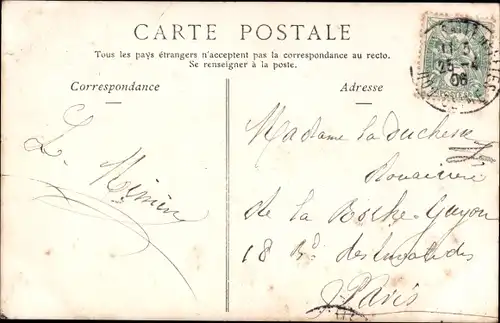 CARTE POSTALE
Tous les pays étrangers n'acceptent pas la correspondance au recto.
Se renseigner à la poste.
Correspondance
Adresse
11
25 -4
06
L. Mimin
Madame la Duchesse
Douairière
de la Roche-Guyon
18 Bd des Invalides
Paris